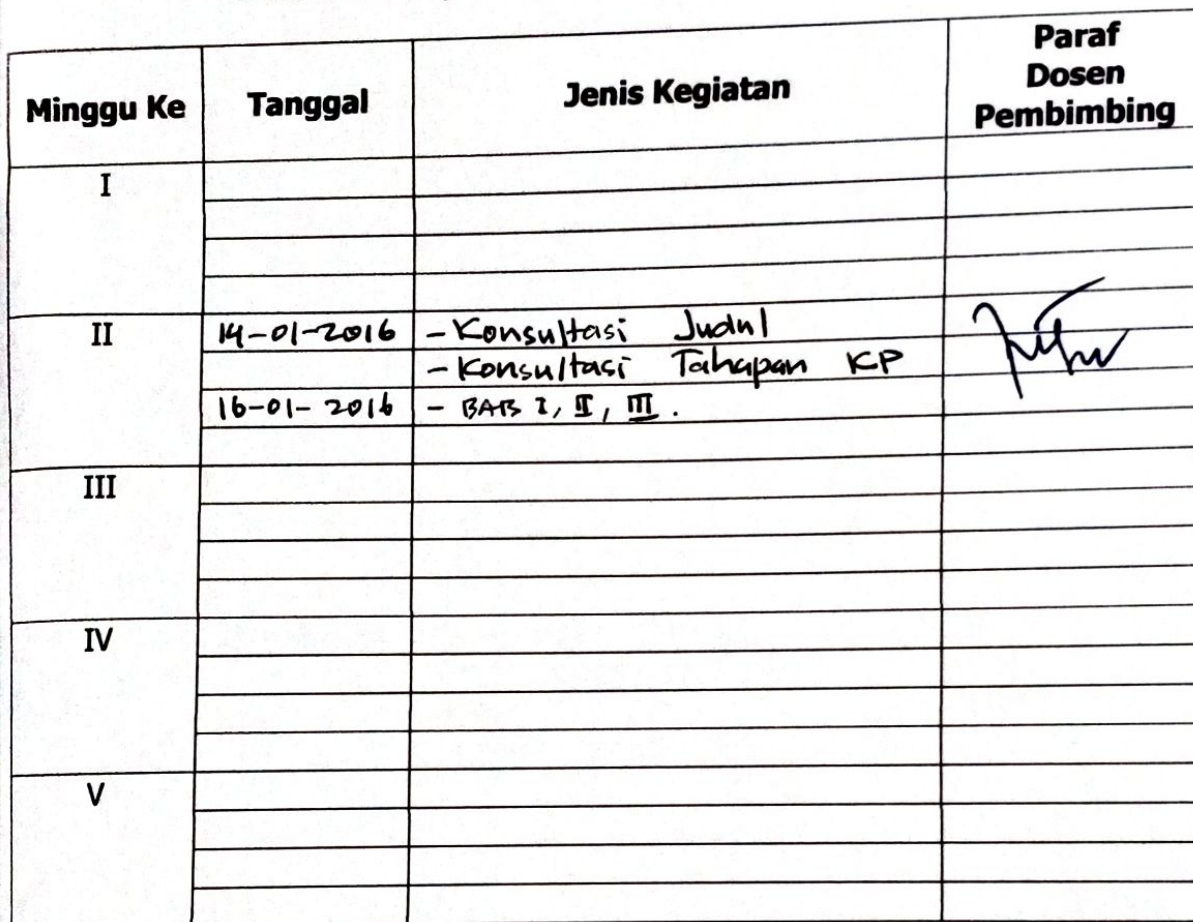 Minggu Ke Tanggal Jenis Kegiatan Paraf
Dosen
Pembimbing
I
II 14-01-2016 - Konsultasi Judul
- Konsultasi Tahapan KP
16-01-2016 - BAB I, II, III.
III
IV
V